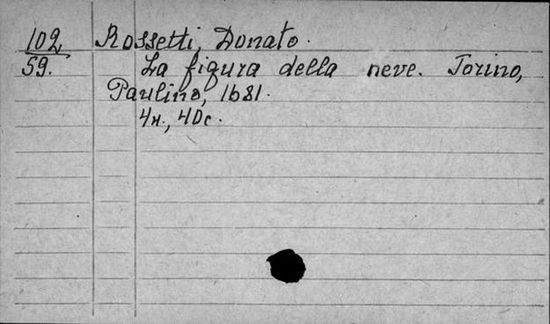 102 Rossetti, Donato.
59. La figura della neve. Torino,
Paulino, 1681.
4н., 40с.